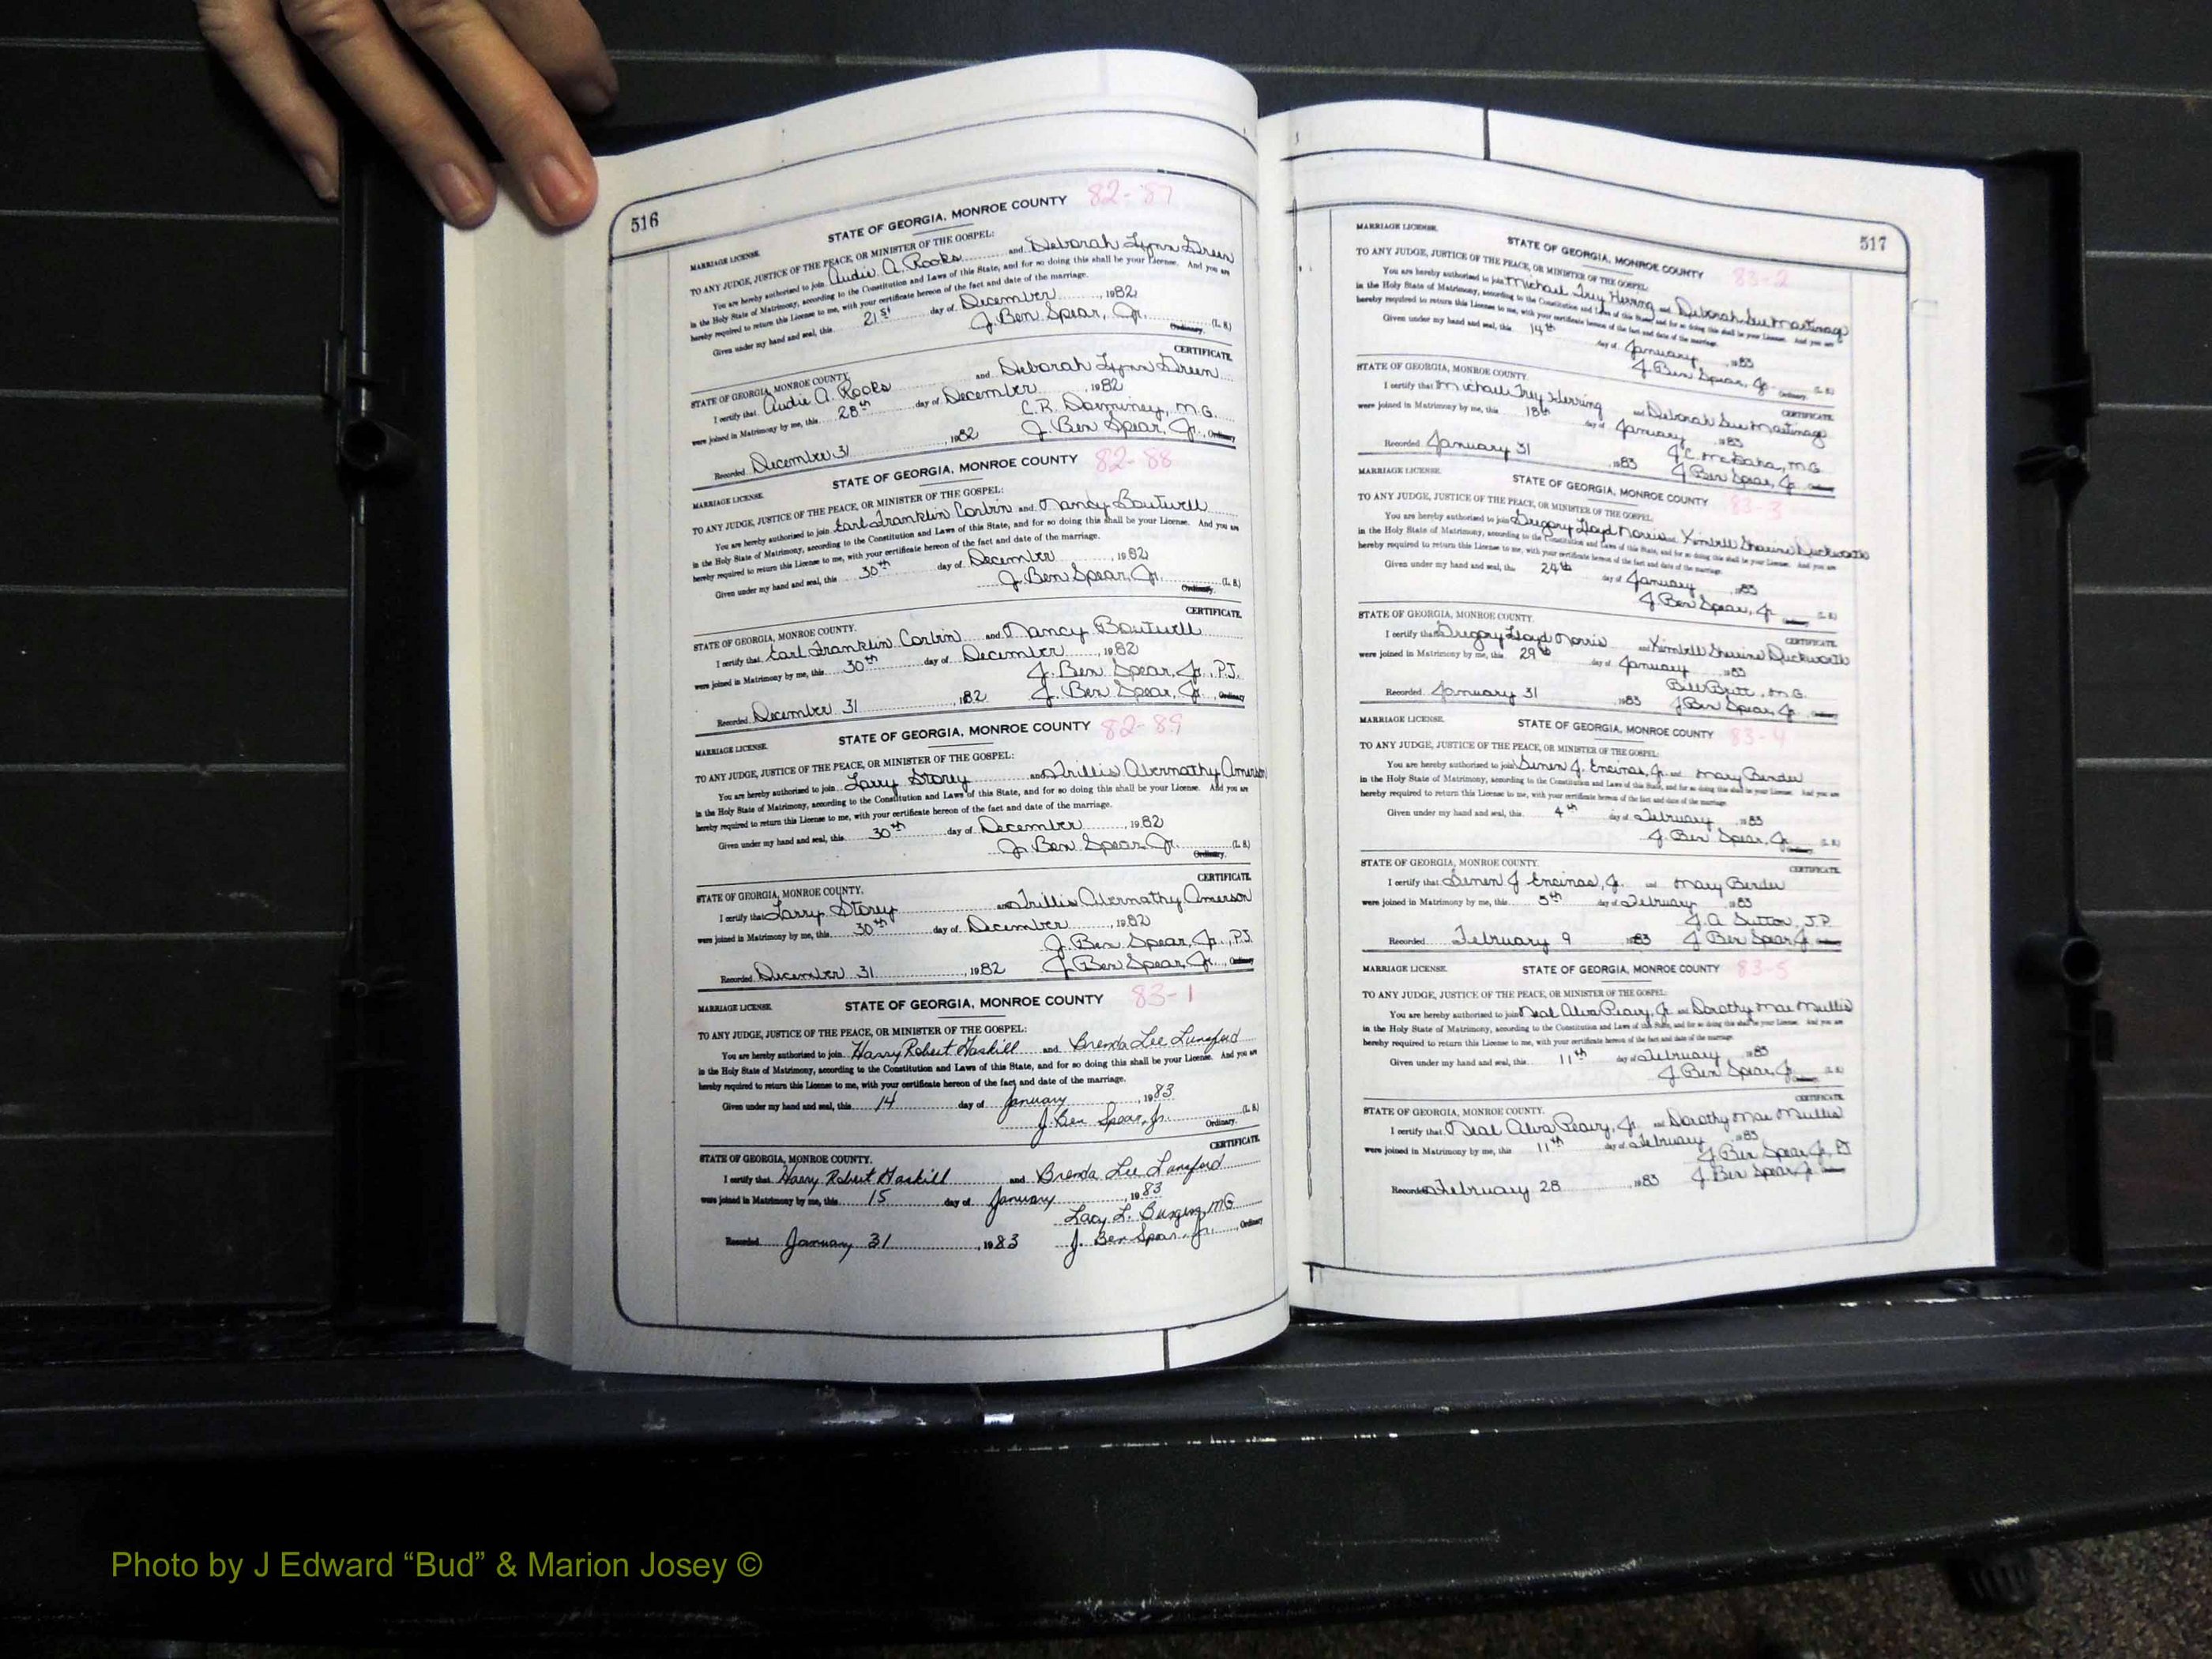 516
STATE OF GEORGIA, MONROE COUNTY 82-87
MARRIAGE LICENSE.
TO ANY JUDGE, JUSTICE OF THE PEACE, OR MINISTER OF THE GOSPEL:
You are hereby authorized to join Audie A. Rooks and Deborah Lynn Green
in the Holy State of Matrimony, according to the Constitution and Laws of this State, and for so doing this shall be your License. And you are
hereby required to return this License to me, with your certificate hereon of the fact and date of the marriage.
Given under my hand and seal, this 21st day of December, 1982
J. Ben Spear, Jr. (L. S.)
Ordinary.
CERTIFICATE.
STATE OF GEORGIA, MONROE COUNTY.
I certify that Audie A. Rooks and Deborah Lynn Green
were joined in Matrimony by me, this 28th day of December, 1982
C.R. Darminey, M.G.
Recorded December 31, 1982 J. Ben Spear, Jr., Ordinary
STATE OF GEORGIA, MONROE COUNTY 82-88
MARRIAGE LICENSE.
TO ANY JUDGE, JUSTICE OF THE PEACE, OR MINISTER OF THE GOSPEL:
You are hereby authorized to join Earl Franklin Corbin and Nancy Boutwell
in the Holy State of Matrimony, according to the Constitution and Laws of this State, and for so doing this shall be your License. And you are
hereby required to return this License to me, with your certificate hereon of the fact and date of the marriage.
Given under my hand and seal, this 30th day of December, 1982
J. Ben Spear, Jr. (L. S.)
Ordinary.
CERTIFICATE.
STATE OF GEORGIA, MONROE COUNTY.
I certify that Earl Franklin Corbin and Nancy Boutwell
were joined in Matrimony by me, this 30th day of December, 1982
J. Ben Spear, Jr., P.J.
Recorded December 31, 1982 J. Ben Spear, Jr., Ordinary
STATE OF GEORGIA, MONROE COUNTY 82-89
MARRIAGE LICENSE.
TO ANY JUDGE, JUSTICE OF THE PEACE, OR MINISTER OF THE GOSPEL:
You are hereby authorized to join Larry Storey and Trillis Abernathy Amerson
in the Holy State of Matrimony, according to the Constitution and Laws of this State, and for so doing this shall be your License. And you are
hereby required to return this License to me, with your certificate hereon of the fact and date of the marriage.
Given under my hand and seal, this 30th day of December, 1982
J. Ben Spear, Jr. (L. S.)
Ordinary.
CERTIFICATE.
STATE OF GEORGIA, MONROE COUNTY.
I certify that Larry Storey and Trillis Abernathy Amerson
were joined in Matrimony by me, this 30th day of December, 1982
J. Ben Spear, Jr., P.J.
Recorded December 31, 1982 J. Ben Spear, Jr., Ordinary
MARRIAGE LICENSE. STATE OF GEORGIA, MONROE COUNTY 83-1
TO ANY JUDGE, JUSTICE OF THE PEACE, OR MINISTER OF THE GOSPEL:
You are hereby authorized to join Harry Robert Haskill and Brenda Lee Lunsford
in the Holy State of Matrimony, according to the Constitution and Laws of this State, and for so doing this shall be your License. And you are
hereby required to return this License to me, with your certificate hereon of the fact and date of the marriage.
Given under my hand and seal, this 14 day of January, 1983
J. Ben Spear, Jr. (L. S.)
Ordinary.
CERTIFICATE.
STATE OF GEORGIA, MONROE COUNTY.
I certify that Harry Robert Haskill and Brenda Lee Lunsford
were joined in Matrimony by me, this 15 day of January, 1983
Lacy L. MG
Recorded January 31, 1983 J. Ben Spear, Jr., Ordinary
517
MARRIAGE LICENSE. STATE OF GEORGIA, MONROE COUNTY 83-2
TO ANY JUDGE, JUSTICE OF THE PEACE, OR MINISTER OF THE GOSPEL:
You are hereby authorized to join Michael Trey Herring and Deborah Sue
in the Holy State of Matrimony, according to the Constitution and Laws of this State, and for so doing this shall be your License. And you are
hereby required to return this License to me, with your certificate hereon of the fact and date of the marriage.
Given under my hand and seal, this 14th day of January, 1983
J. Ben Spear, Jr. (L. S.)
Ordinary.
CERTIFICATE.
STATE OF GEORGIA, MONROE COUNTY.
I certify that Michael Trey Herring and Deborah Sue
were joined in Matrimony by me, this 18th day of January, 1983
J.C. M.G.
Recorded January 31, 1983 J. Ben Spear, Jr.
MARRIAGE LICENSE. STATE OF GEORGIA, MONROE COUNTY 83-3
TO ANY JUDGE, JUSTICE OF THE PEACE, OR MINISTER OF THE GOSPEL:
You are hereby authorized to join Gregory Lloyd Norris and Kimbell Duckworth
in the Holy State of Matrimony, according to the Constitution and Laws of this State, and for so doing this shall be your License. And you are
hereby required to return this License to me, with your certificate hereon of the fact and date of the marriage.
Given under my hand and seal, this 24th day of January, 1983
J. Ben Spear, Jr. (L. S.)
CERTIFICATE.
STATE OF GEORGIA, MONROE COUNTY.
I certify that Gregory Lloyd Norris and Kimbell Duckworth
were joined in Matrimony by me, this 29th day of January, 1983
Bill Britt, M.G.
Recorded January 31, 1983 J. Ben Spear, Jr.
MARRIAGE LICENSE. STATE OF GEORGIA, MONROE COUNTY 83-4
TO ANY JUDGE, JUSTICE OF THE PEACE, OR MINISTER OF THE GOSPEL:
You are hereby authorized to join Senen J. Encinas, Jr. and Mary Bender
in the Holy State of Matrimony, according to the Constitution and Laws of this State, and for so doing this shall be your License. And you are
hereby required to return this License to me, with your certificate hereon of the fact and date of the marriage.
Given under my hand and seal, this 4th day of February, 1983
J. Ben Spear, Jr. (L. S.)
CERTIFICATE.
STATE OF GEORGIA, MONROE COUNTY.
I certify that Senen J. Encinas, Jr. and Mary Bender
were joined in Matrimony by me, this 5th day of February, 1983
J.A. Sutton, J.P.
Recorded February 9 1983 J. Ben Spear, Jr.
MARRIAGE LICENSE. STATE OF GEORGIA, MONROE COUNTY 83-5
TO ANY JUDGE, JUSTICE OF THE PEACE, OR MINISTER OF THE GOSPEL:
You are hereby authorized to join Neal Alva Peavy, Jr. and Dorothy Mae Mullis
in the Holy State of Matrimony, according to the Constitution and Laws of this State, and for so doing this shall be your License. And you are
hereby required to return this License to me, with your certificate hereon of the fact and date of the marriage.
Given under my hand and seal, this 11th day of February, 1983
J. Ben Spear, Jr. (L. S.)
CERTIFICATE.
STATE OF GEORGIA, MONROE COUNTY.
I certify that Neal Alva Peavy, Jr. and Dorothy Mae Mullis
were joined in Matrimony by me, this 11th day of February, 1983
J. Ben Spear, Jr., PJ
Recorded February 28, 1983 J. Ben Spear, Jr.
Photo by J Edward “Bud” & Marion Josey ©